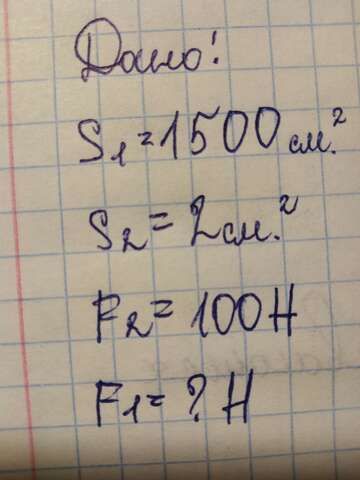 Дано:
S1=1500см.²
S2=2см.²
F2=100Н
F1=?Н